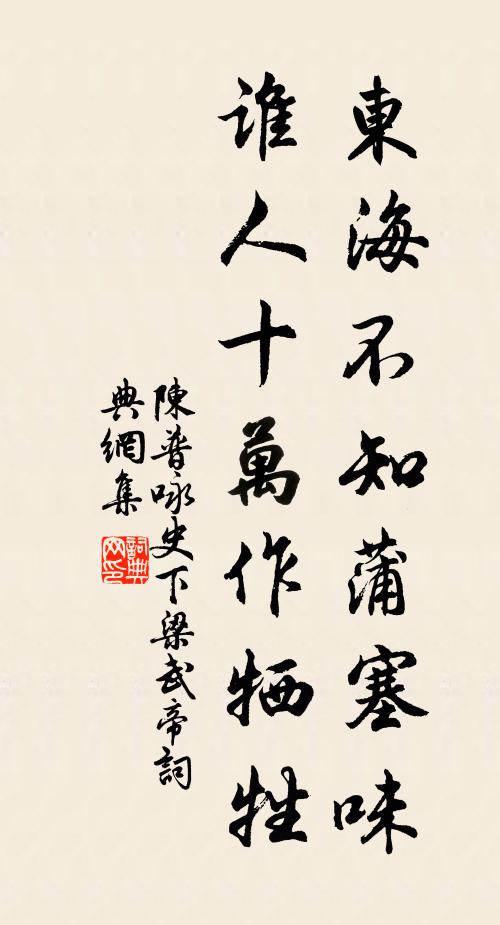 東海不知蒲塞味
誰人十萬作牺牲
陳普咏史下梁武帝詞
典網集
詞典网印